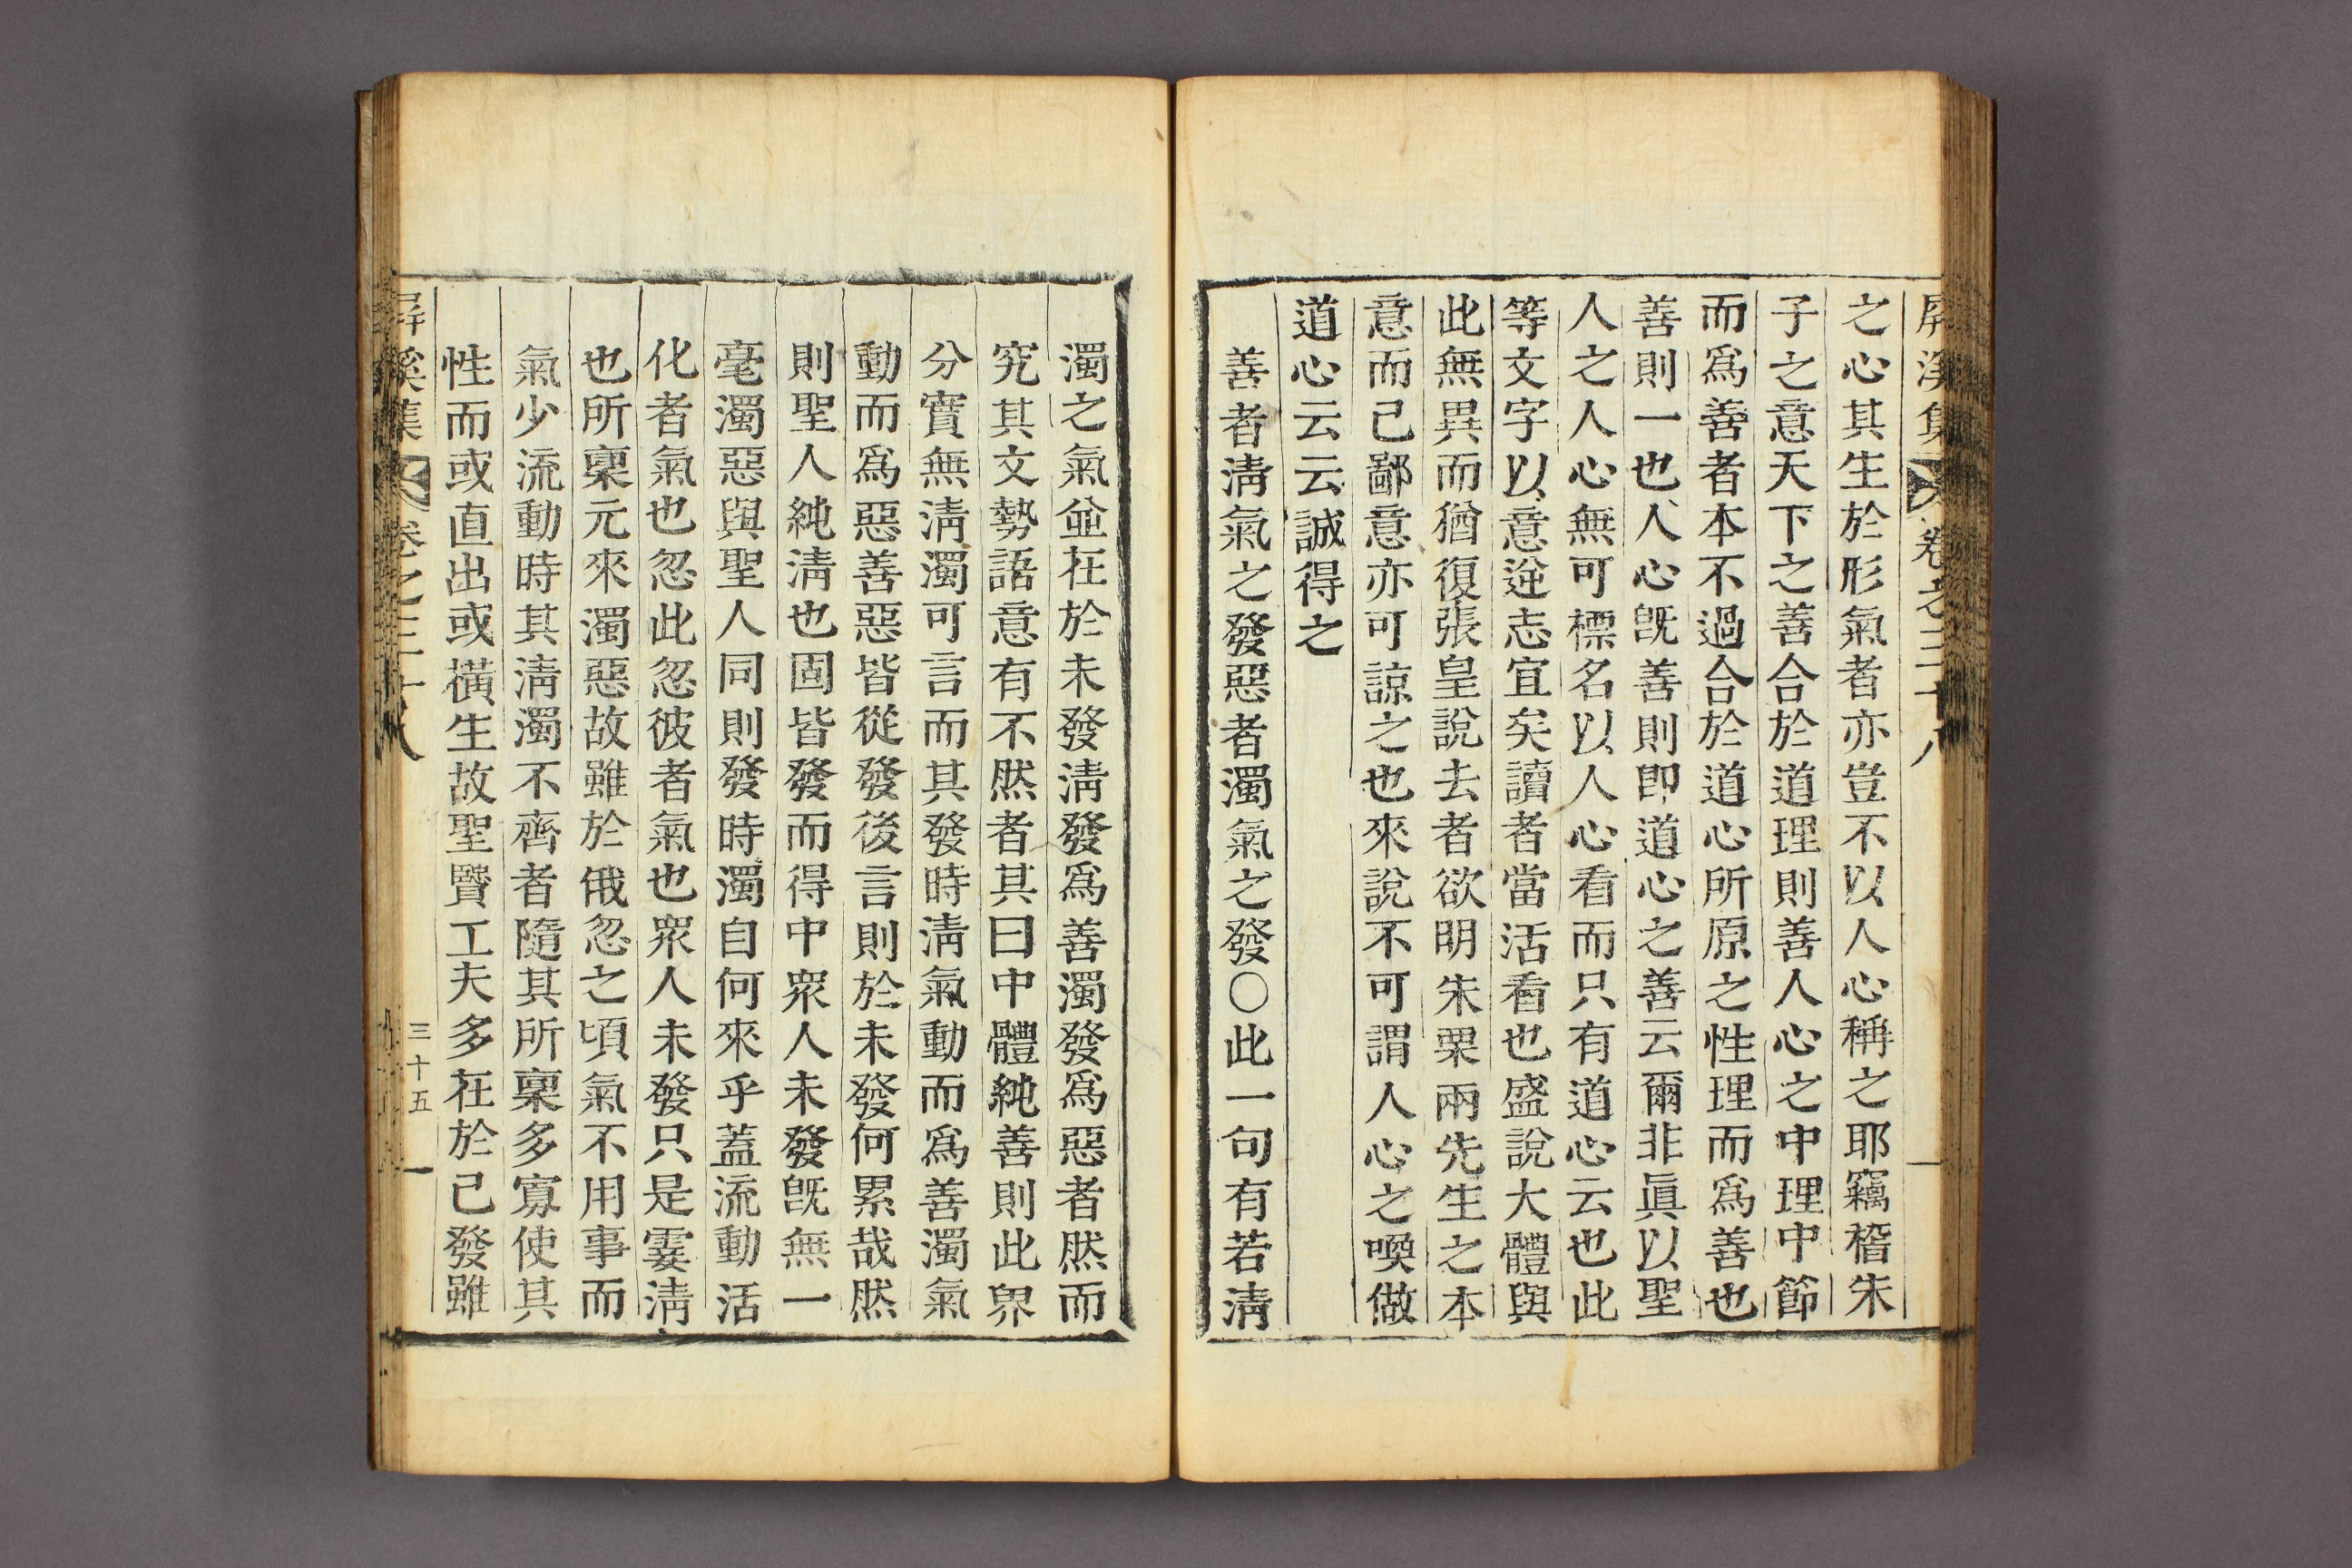 屛溪集 卷之三十八
之心其生於形氣者亦豈不以人心稱之耶竊稽朱
子之意天下之善合於道理則善人心之中理中節
而爲善者本不過合於道心所原之性理而爲善也
善則一也人心旣善則卽道心之善云爾非眞以聖
人之人心無可標名以人心看而只有道心云也此
等文字以意逆志宜矣讀者當活看也盛說大體與
此無異而猶復張皇說去者欲明朱栗兩先生之本
意而已鄙意亦可諒之也來說不可謂人心之喚做
道心云云誠得之
善者淸氣之發惡者濁氣之發○此一句有若淸
濁之氣並在於未發淸發爲善濁發爲惡者然而
究其文勢語意有不然者其曰中體純善則此界
分實無淸濁可言而其發時淸氣動而爲善濁氣
動而爲惡善惡皆從發後言則於未發何累哉然
則聖人純淸也固皆發而得中衆人未發旣無一
毫濁惡與聖人同則發時濁自何來乎蓋流動活
化者氣也忽此忽彼者氣也衆人未發只是霎淸
也所稟元來濁惡故雖於俄忽之頃氣不用事而
氣少流動時其淸濁不齊者隨其所稟多寡使其
性而或直出或橫生故聖賢工夫多在於已發雖
屛溪集 卷之三十八 三十五